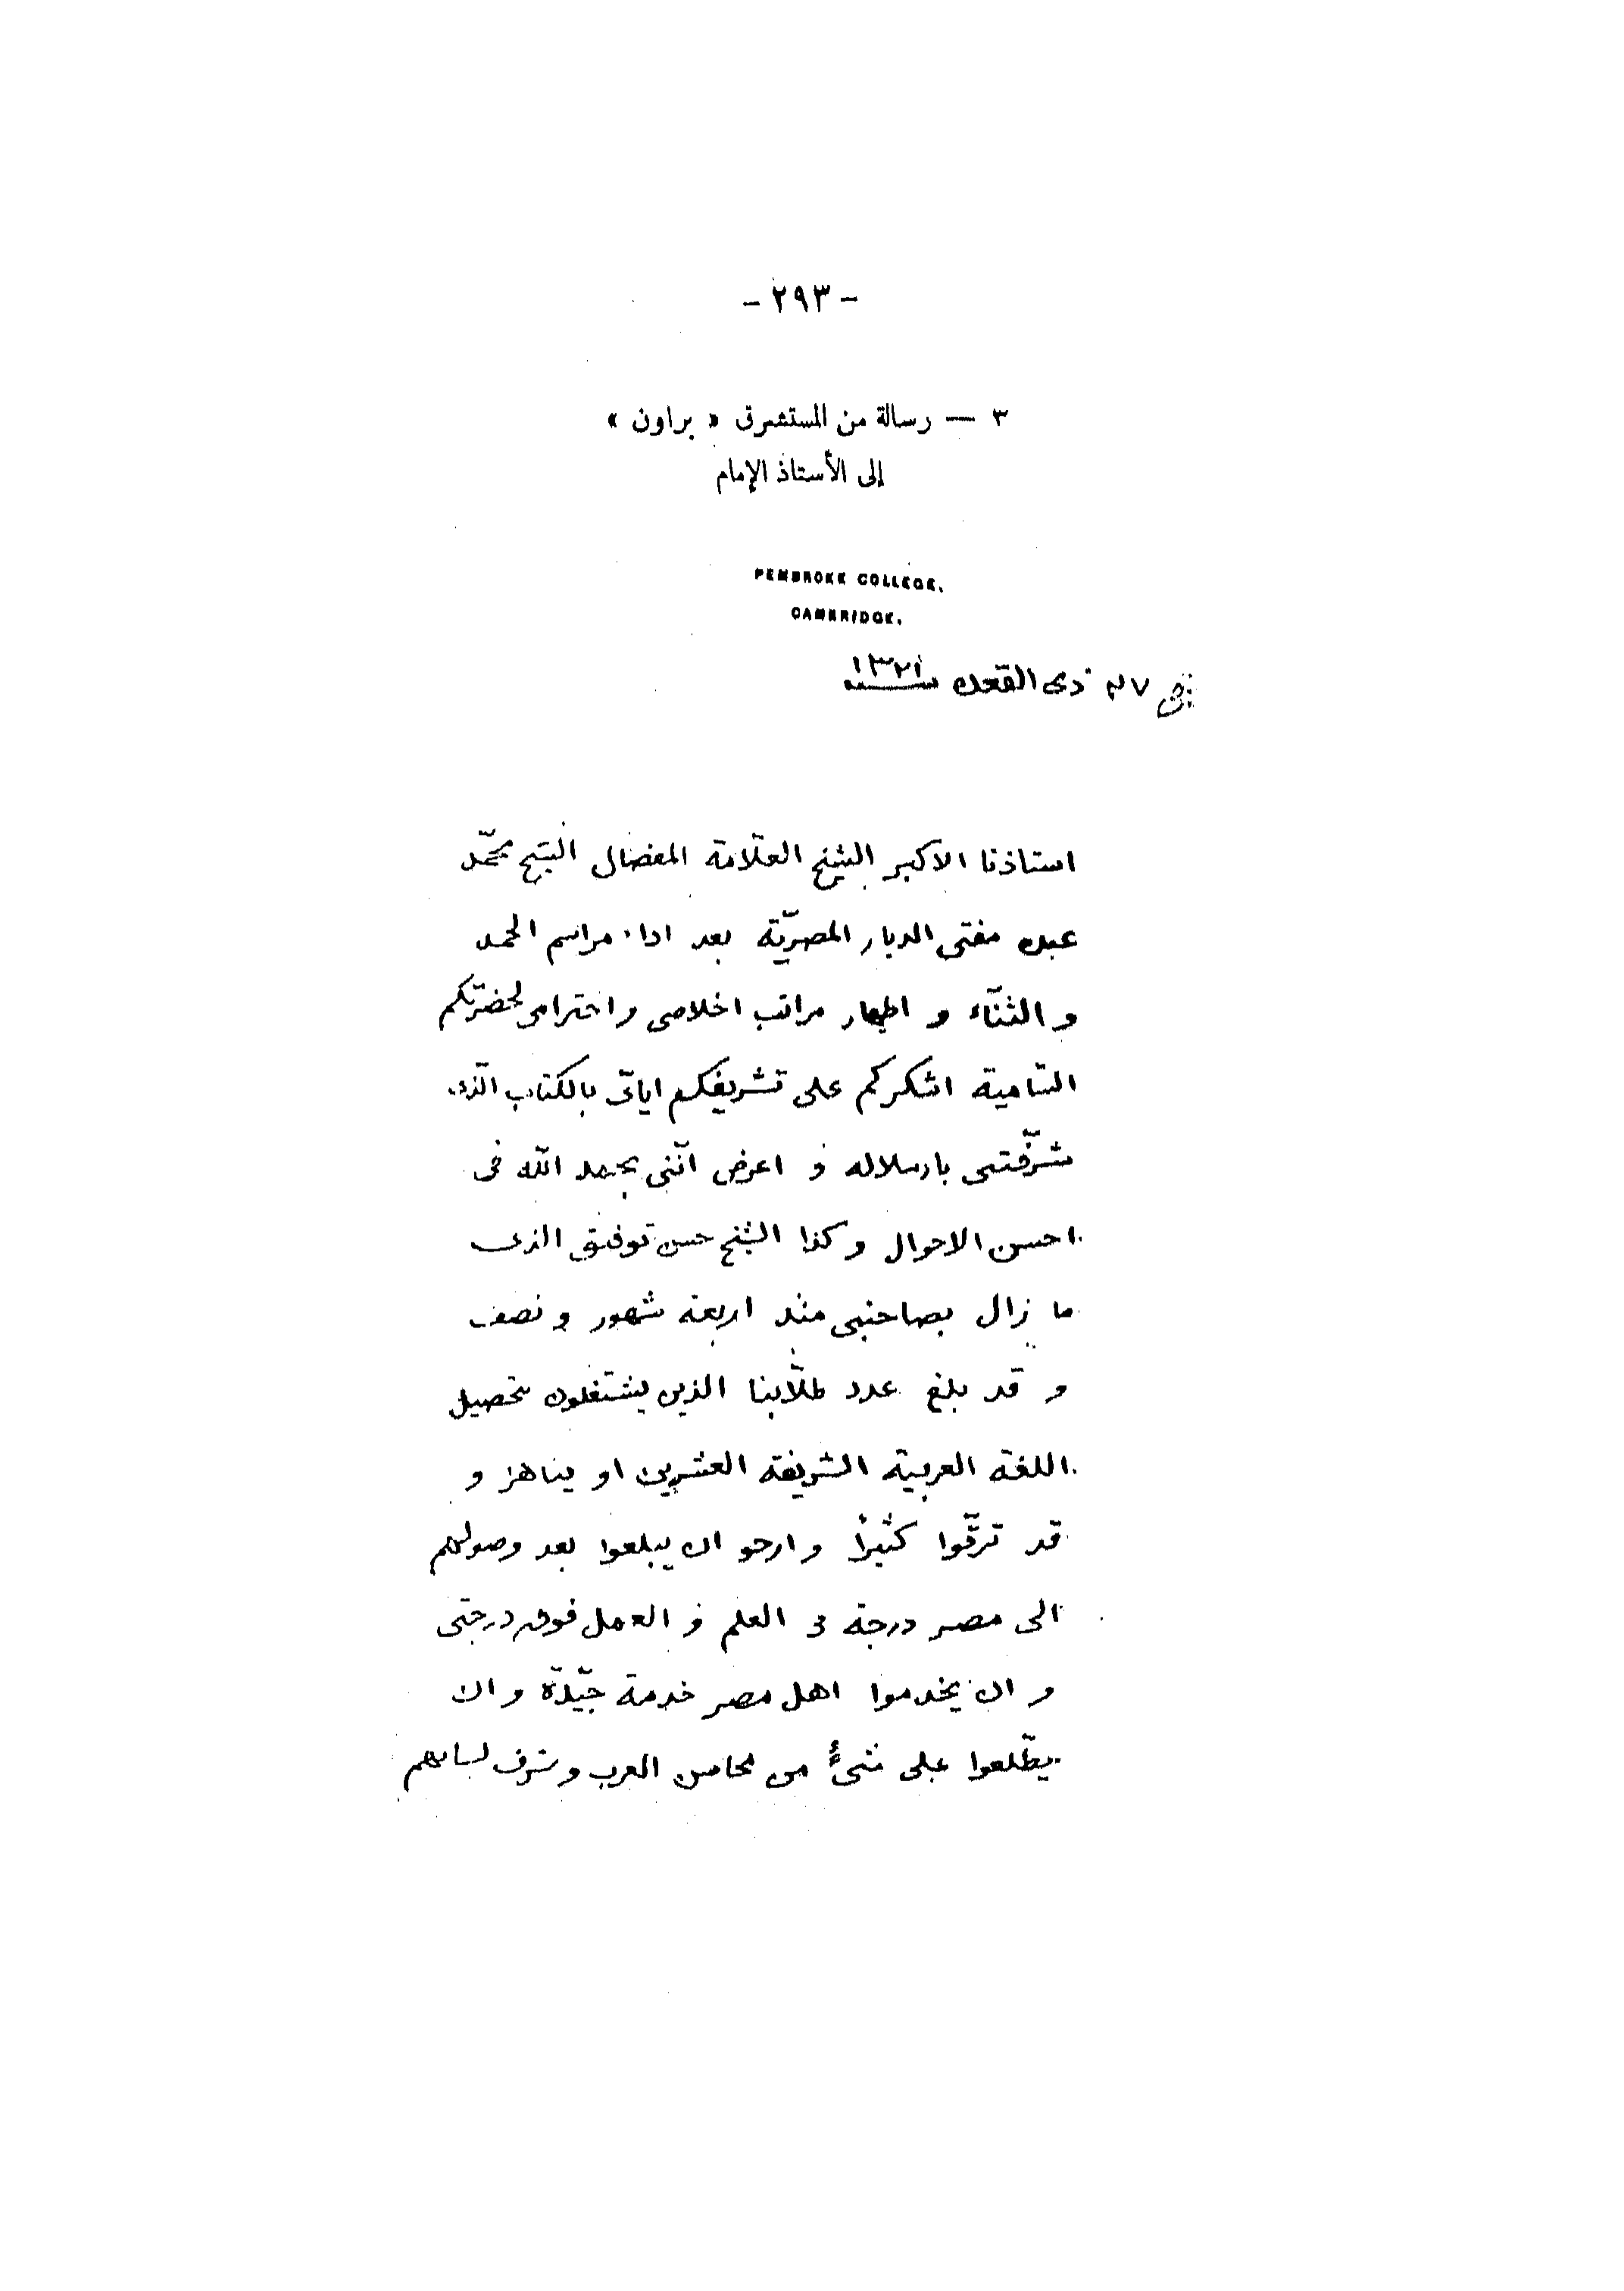 - ٢٩٣ -
٣ — رسالة من المستشرق « براون »
إلى الأستاذ الإمام
PEMBROKE COLLEGE,
CAMBRIDGE.
فى ٢٧ ذى القعده سنه ١٣٢١
استاذنا الاكبر الشيخ العلّامة المفضال الشيخ محمّد
عبده مفتى الديار المصريّة بعد اداء مراسم الحمد
و الثنآء و اظهار مراتب اخلاصى و احترامى لحضرتكم
السّامية اشكركم على تشريفكم ايّاى بالكتاب الّذى
شرّفتنى بارساله و اعرض انّنى بحمد اللّه فى
احسن الاحوال و كذا الشيخ حسن توفيق الذى
ما زال يصاحبنى منذ اربعة شهور و نصف
و قد بلغ عدد طلّابنا الذين يشتغلون بتحصيل
اللغة العربية الشريفة العشرين او يناهز و
قد ترقّوا كثيرًا و ارجو ان يبلغوا بعد وصولهم
الى مصر درجة فى العلم و العمل فوق درجتى
و ان يخدموا اهل مصر خدمة جيّدة و ان
يطّلعوا على شىءٍ من محاسن العرب و شرف لسانهم